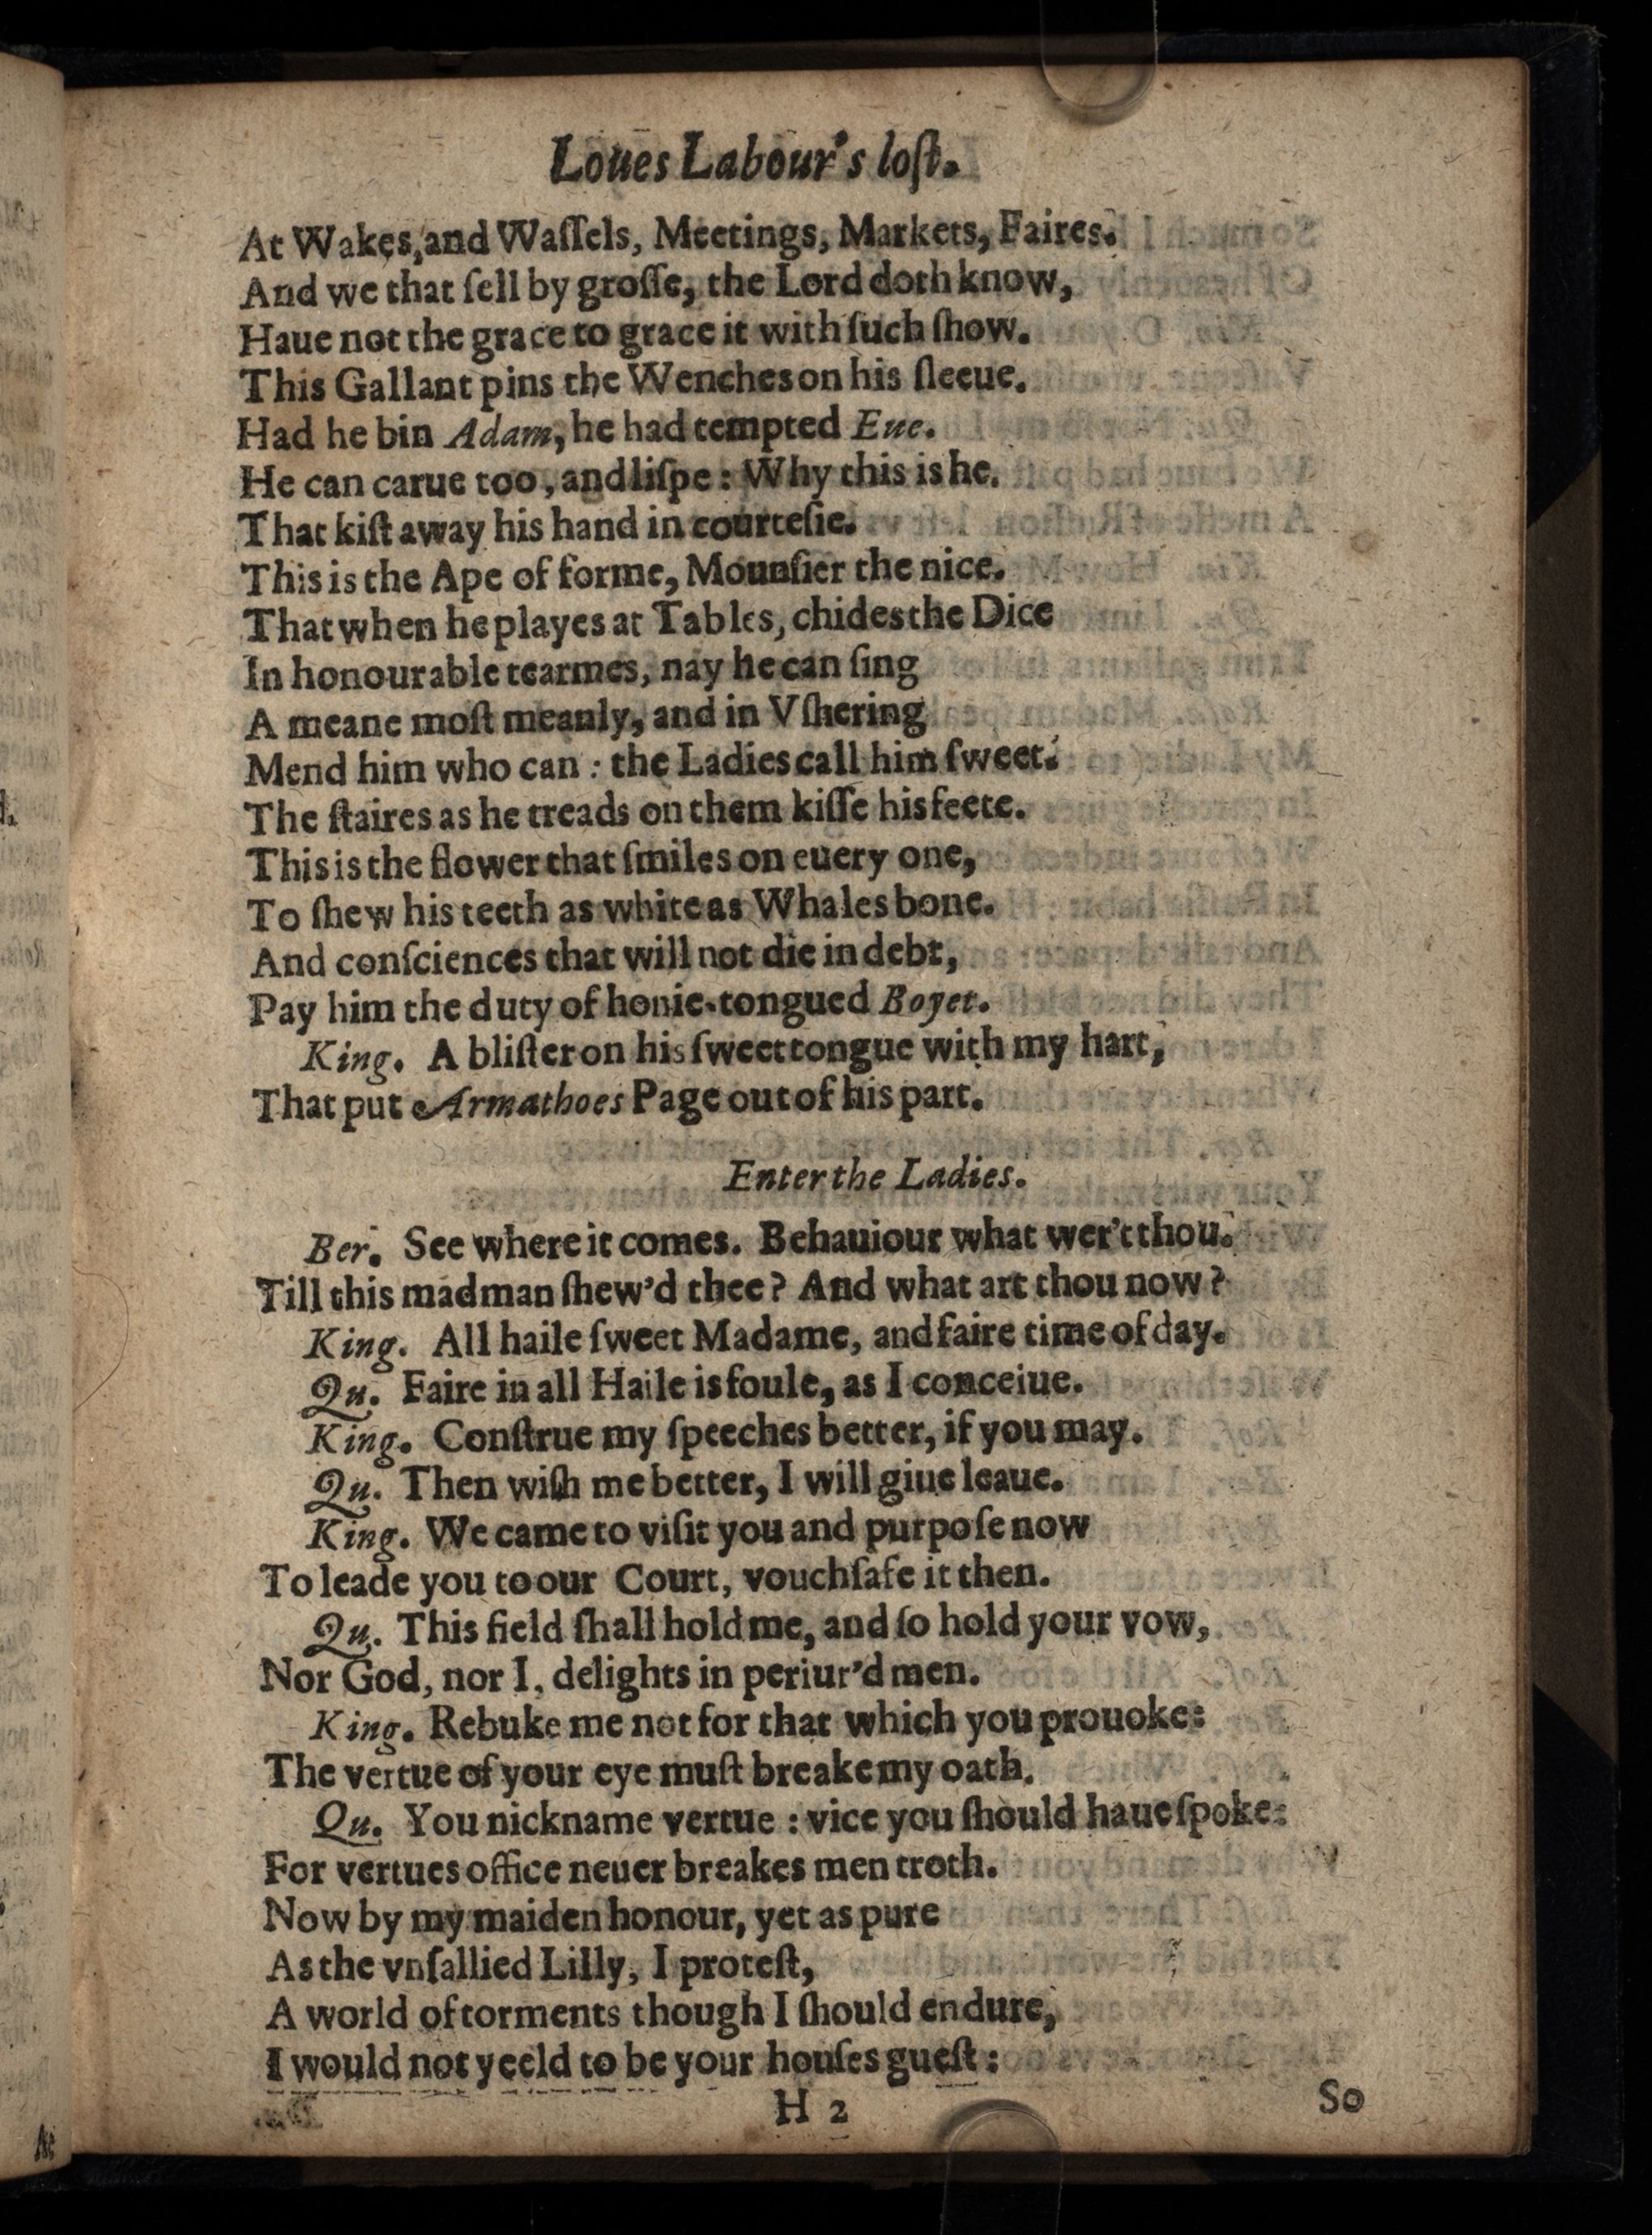 Loues Labour's loſt.
At Wakes, and Waſſels, Meetings, Markets, Faires.
And we that ſell by groſſe, the Lord doth know,
Haue not the grace to grace it with ſuch ſhow.
This Gallant pins the Wenches on his ſleeue.
Had he bin Adam, he had tempted Eue.
He can carue too, and liſpe : Why this is he.
That kiſt away his hand in courteſie.
This is the Ape of forme, Mounſier the nice.
That when he playes at Tables, chides the Dice
In honourable tearmes, nay he can ſing
A meane moſt meanly, and in Vſhering
Mend him who can : the Ladies call him ſweet.
The ſtaires as he treads on them kiſſe his feete.
This is the flower that ſmiles on euery one,
To ſhew his teeth as white as Whales bone.
And conſciences that will not die in debt,
Pay him the duty of honie-tongued Boyet.
King. A bliſter on his ſweet tongue with my hart,
That put Armathoes Page out of his part.
Enter the Ladies.
Ber. See where it comes. Behauiour what wer't thou.
Till this madman ſhew'd thee? And what art thou now?
King. All haile ſweet Madame, and faire time of day.
Qu. Faire in all Haile is foule, as I conceiue.
King. Conſtrue my ſpeeches better, if you may.
Qu. Then wiſh me better, I will giue leaue.
King. We came to viſit you and purpoſe now
To leade you to our Court, vouchſafe it then.
Qu. This field ſhall hold me, and ſo hold your vow,
Nor God, nor I, delights in periur'd men.
King. Rebuke me not for that which you prouoke:
The vertue of your eye muſt breake my oath.
Qu. You nickname vertue : vice you ſhould haue ſpoke:
For vertues office neuer breakes men troth.
Now by my maiden honour, yet as pure
As the vnſallied Lilly, I proteſt,
A world of torments though I ſhould endure,
I would not yeeld to be your houſes gueſt :
H 2
So